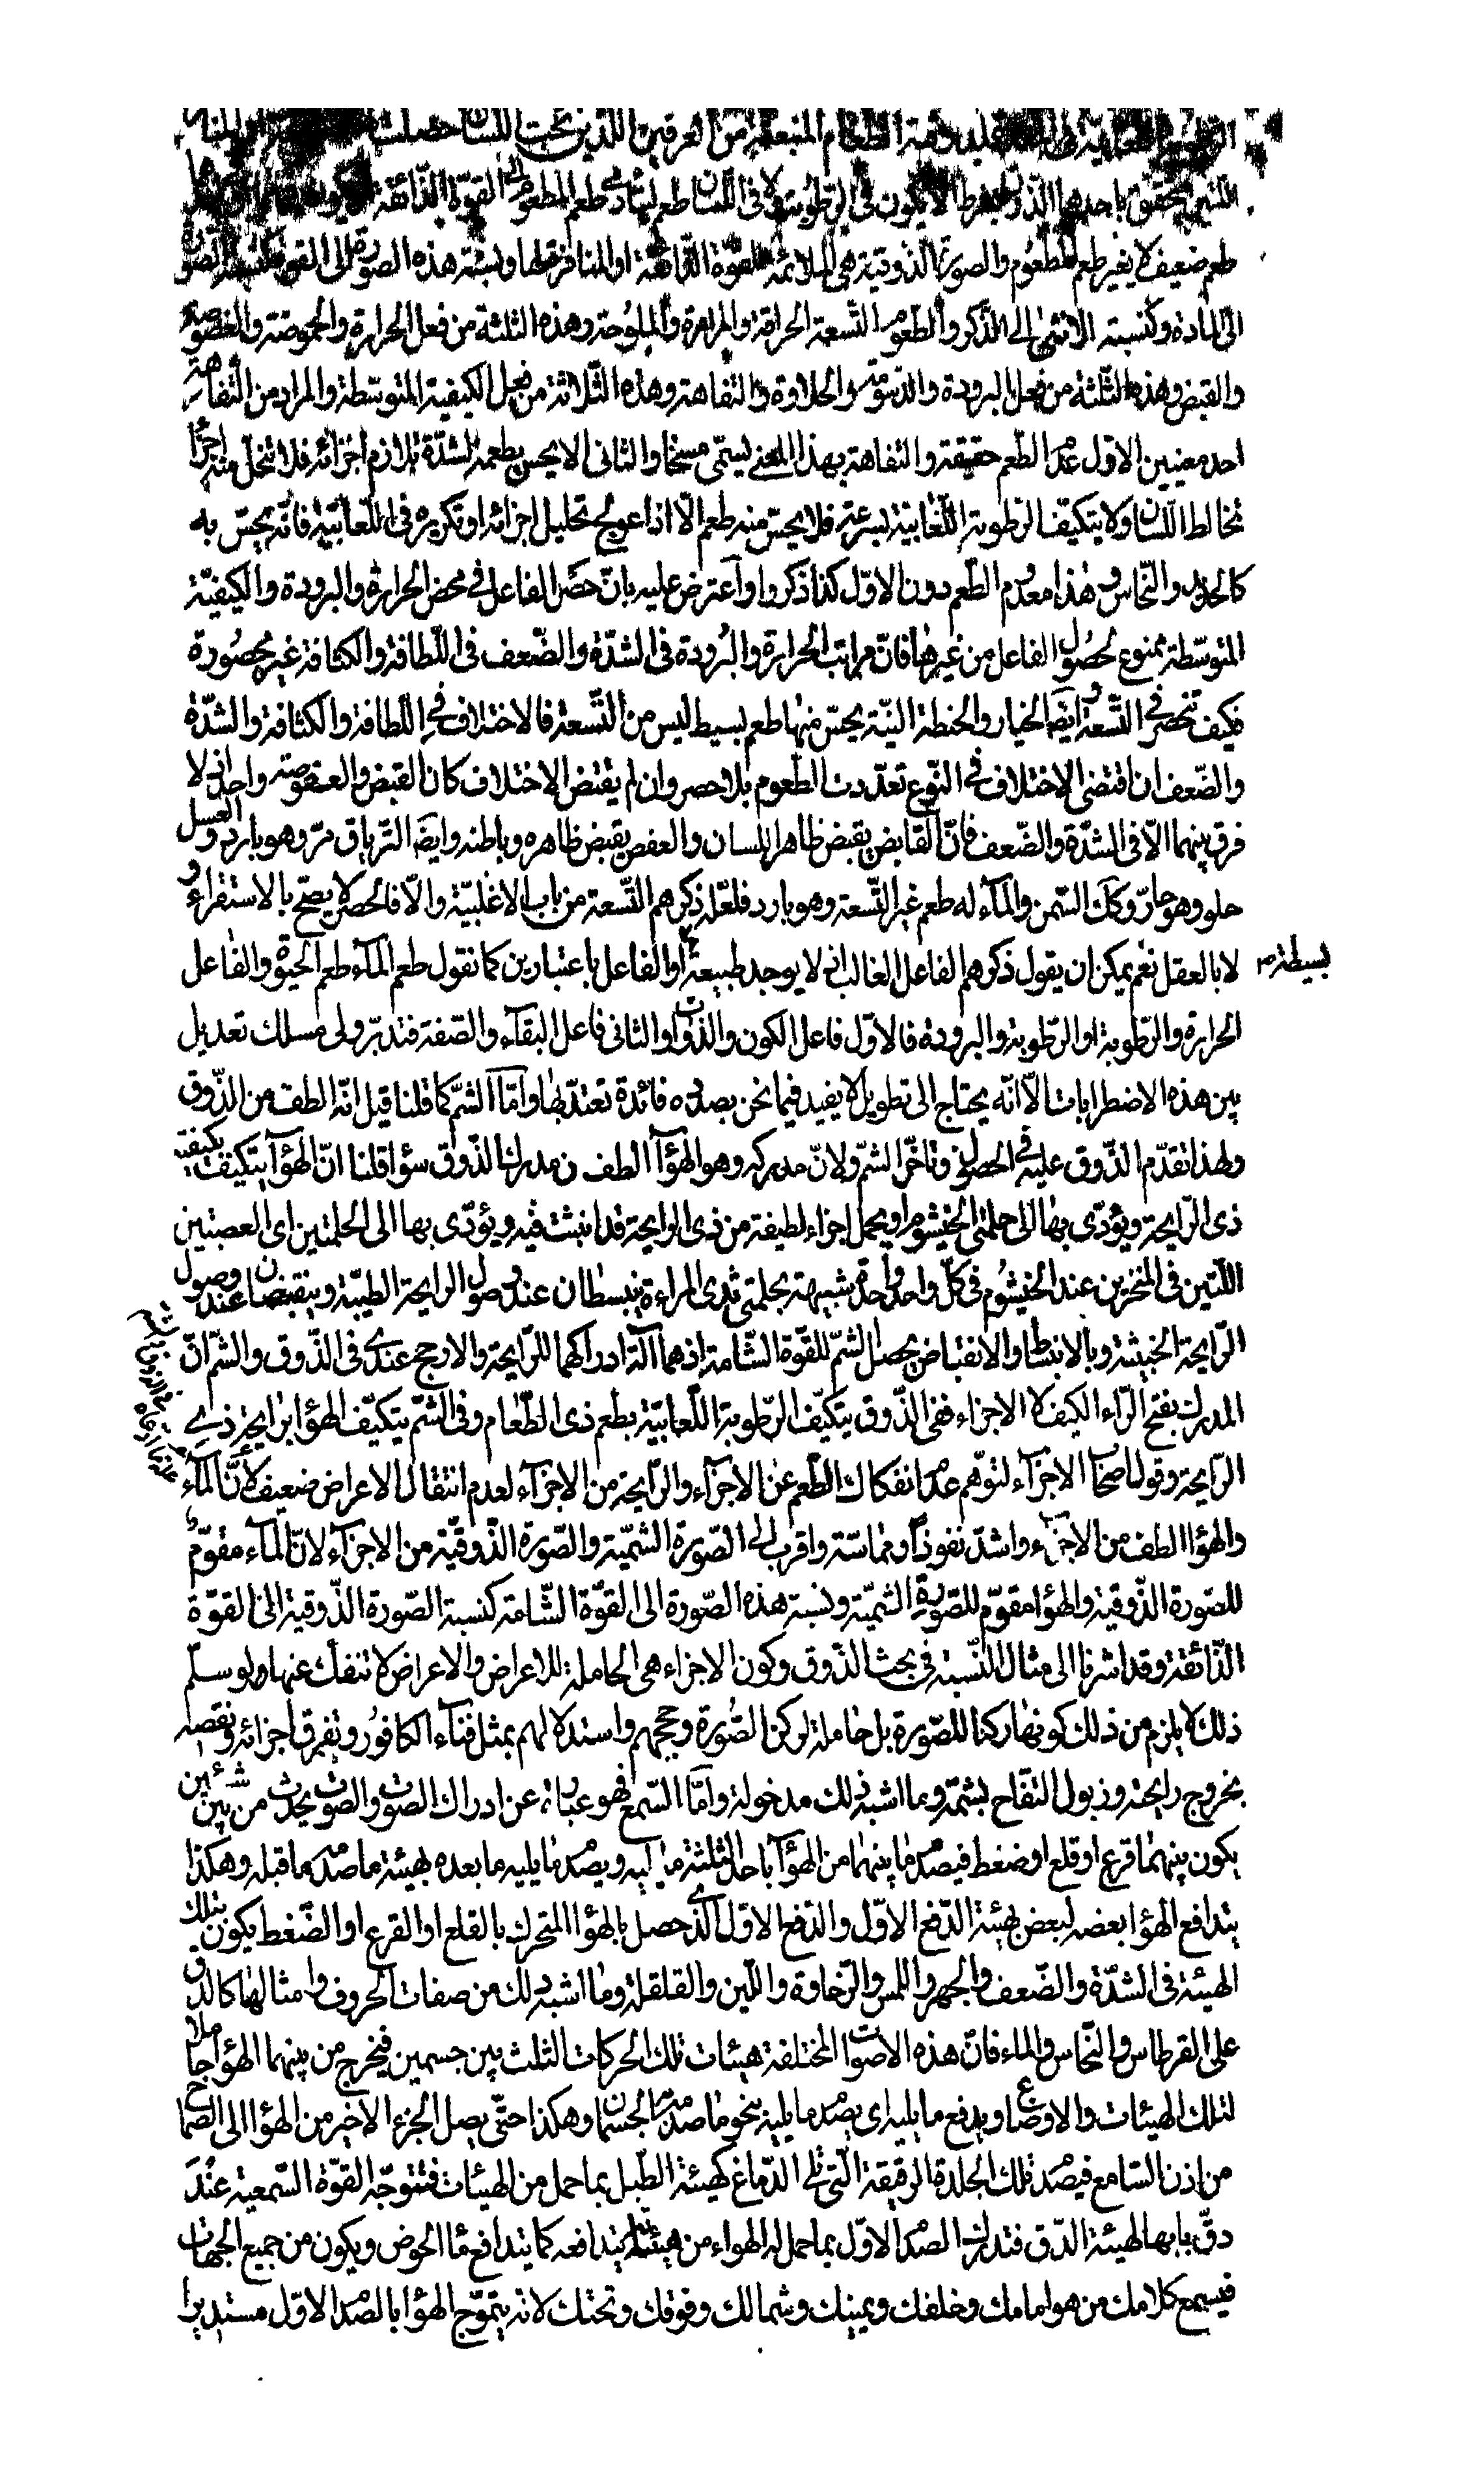 الطعام المنبعثة من العرقين اللذين تحت اللسان حصلت
يتحقق باحدهما الذوق بشرط ان لا يكون في الرطوبة ولا في اللسان طعم ليتأدى طعم المطعوم الى القوة الذائقة
طعم ضعيف لا يغير طعم المطعوم والصورة الذوقية هي الملائمة للقوة الذائقة او المنافرة لها ونسبة هذه الصورة الى القوة كنسبة الصورة
الى المادة وكنسبة الانثى الى الذكر والطعوم التسعة الحرافة والمرارة والملوحة وهذه الثلثة من فعل الحرارة والحموضة والعفوصة
والقبض وهذه الثلثة من فعل البرودة والدسومة والحلاوة والتفاهة وهذه الثلاثة من فعل الكيفية المتوسطة والمراد من التفاهة
احد معنيين الاول عدم الطعم حقيقة والتفاهة بهذا المعنى يسمى مسخا والثاني الا يحس بطعمه لشدة تلازم اجزائه فلا تنحل منه اجزاء
تخالط اللسان ولا يتكيف الرطوبة اللعابية بسرعة فلا يحس منه طعم الا اذا عولج تحليل اجزائه او تكريره في اللعابية فانه يحس به
كالحديد والنحاس وهذا معدوم الطعم دون الاول كذا ذكروا واعترض عليه بان حصر الفاعل في محض الحرارة والبرودة والكيفية
المتوسطة ممنوع لحصول الفاعل من غيرها فان مراتب الحرارة والبرودة في الشدة والضعف في اللطافة والكثافة غير محصورة
فكيف تنحصر في التسعة وايضا الخيار والحنطة النية يحس منها طعم بسيط ليس من التسعة فالاختلاف في اللطافة والكثافة والشدة
والضعف ان اقتضى الاختلاف في النوع تعددت الطعوم بلا حصر وان لم يقتض الاختلاف كان القبض والعفوصة واحدا اذ لا
فرق بينهما الا في الشدة والضعف فان القابض يقبض ظاهر اللسان والعفص يقبض ظاهره وباطنه وايضا الترياق مر وهو بارد والعسل
حلو وهو حار وكك السمن والماء له طعم غير التسعة وهو بارد فلعل ذكرهم التسعة من باب الاغلبية والا فالحصر لا يصح بالاستقراء و
لا بالعقل نعم يمكن ان يقول ذكرهم الفاعل الغالب اذ لا يوجد طبيعة او الفاعل باعتبارين كما نقول طعم الماء طعم الحيوة والفاعل
بسيطة
الحرارة والرطوبة او الرطوبة والبرودة فالاول فاعل الكون والذوات والثاني فاعل البقاء والصفة فتدبر ولى مسلك تعديل
بين هذه الاضطرابات الا انه يحتاج الى تطويل لا يفيد فيما نحن بصدده فائدة تعتد بها واما الشم كما قلنا قيل انه الطف من الذوق
ولهذا تقدم الذوق عليه في الحصول وتاخر الشم ولان مدركه وهو الهواء الطف من مدرك الذوق سواء قلنا ان الهواء يتكيف بكيفية
ذي الرايحة ويؤدي بها الى حلمتي الخيشوم او يحمل اجزاء لطيفة من ذي الرايحة قد انبثت فيه ويؤدي بها الى الحلمتين اي العصبتين
اللتين في المنخرين عند الخيشوم في كل واحد واحدة شبيهة بحلمتي ثدي المراءة ينبسطان عند وصول الرايحة الطيبة وينقبضان عند وصول
الرايحة الخبيثة وبالانبساط والانقباض يحصل الشم للقوة الشامة اذ هما آلة ادراكهما للرايحة والارجح عندي في الذوق والشم ان
المدرك بفتح الراء الكيف لا الاجزاء ففي الذوق يتكيف الرطوبة اللعابية بطعم ذي الطعام وفي الشم يتكيف الهواء برايحة ذي
الرايحة وقول اصحاب الاجزاء لتوهم عدم انفكاك الطعم عن الاجزاء والرايحة من الاجزاء لعدم انتقال الاعراض ضعيف لان الماء
والهواء الطف من الاجزاء واشد نفوذا ومماسة واقرب الى الصورة الشمية والصورة الذوقية من الاجزاء لان الماء مقوم
للصورة الذوقية والهواء مقوم للصورة الشمية ونسبة هذه الصورة الى القوة الشامة كنسبة الصورة الذوقية الى القوة
الذائقة وقد اشرنا الى مثال النسبة في بحث الذوق وكون الاجزاء هي الحاملة للاعراض والاعراض لا تنفك عنها ولو سلم
ذلك لا يلزم من ذلك كونها ركنا للصورة بل حاملة لركن الصورة وحججهم واستدلالهم بمثل فناء الكافور وتفرق اجزائه ونقصه
بخروج رايحته وذبول التفاح بشمه وما اشبه ذلك مدخولة واما السمع فهو عبارة عن ادراك الصوت والصوت يحدث من بين شيئين
يكون بينهما قرع او قلع او ضغط فيصدم ما بينهما من الهواء باحد الثلثة ما يليه ويصدم ما يليه ما بعده بهيئة ما صدمه ما قبله وهكذا
يتدافع الهواء بعضه لبعض بهيئة الدفع الاول والدفع الاول الذي حصل بالهواء المتحرك بالقلع او القرع او الضغط يكون بتلك
الهيئة في الشدة والضعف والجهر والهمس والرخاوة واللين والقلقلة وما اشبه ذلك من صفات الحروف وامثالها كالدق
على القرطاس والنحاس والماء فان هذه الاصوات المختلفة هيئات تلك الحركات الثلث بين جسمين فيخرج من بينهما الهواء حاملا
لتلك الهيئات والاوضاع ويدفع ما يليه اي يصدم ما يليه بنحو ما صدمه الجسمان وهكذا حتى يصل الجزء الاخير من الهواء الى الصماخ
من اذن السامع فيصدم تلك الجلدة الرقيقة التي تلي الدماغ كهيئة الطبل بما حمل من الهيئات فتتوجه القوة السمعية عند
دق بابها لهيئة الدق فتدرك الصدم الاول بما حمل له الهواء من هيئته بتدافعه كما يتدافع ماء الحوض ويكون من جميع الجهات
فيسمع كلامك من هو امامك وخلفك ويمينك وشمالك وفوقك وتحتك لانه يتموج الهواء بالصدم الاول مستديرا